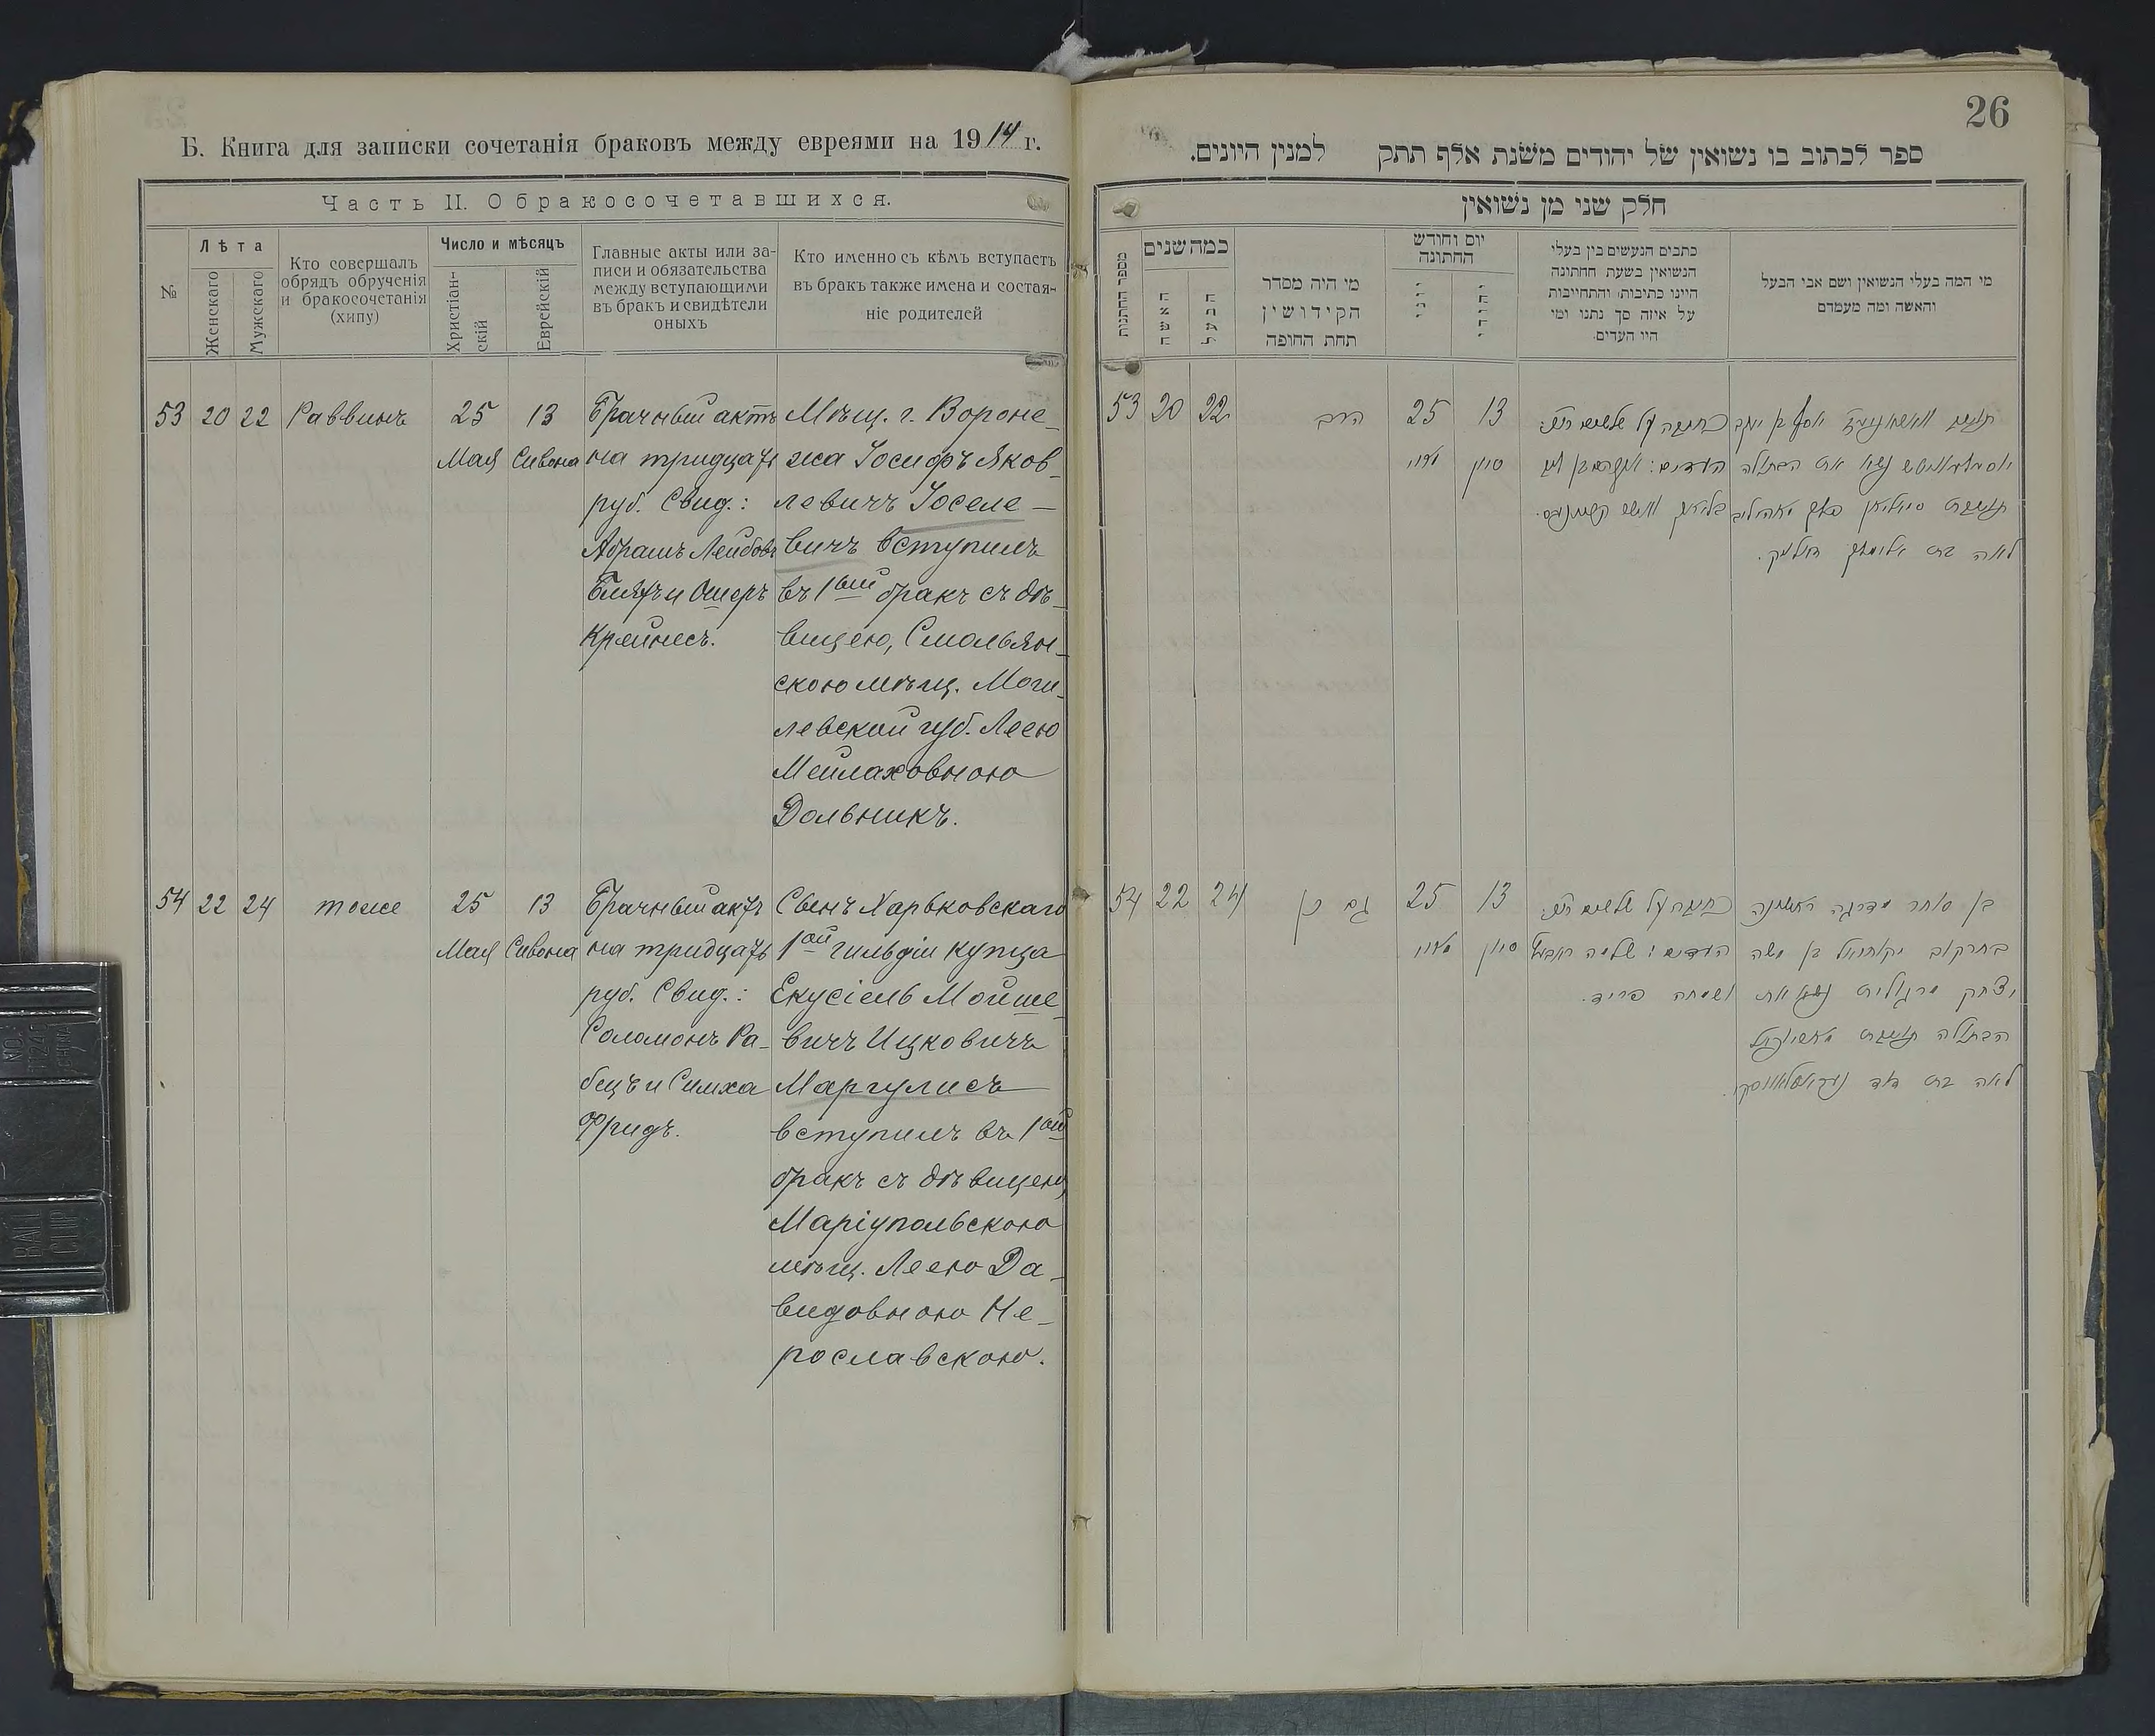 Б. Книга для записки сочетанія браковъ между евреями на 1914 г.
Часть II. О бракосочетавшихся.
№
Лѣта
Женскаго
Мужскаго
Кто совершалъ
обрядъ обрученія
и бракосочетанія
(хипу)
Число и мѣсяцъ
Христіан-
скій
Еврейскій
Главные акты или за-
писи и обязательства
между вступающими
въ бракъ и свидѣтели
оныхъ
Кто именно съ кѣмъ вступаетъ
въ бракъ также имена и состоя-
ніе родителей
53 20 22 Раввинъ
25 Мая
13 Сивона
Брачный актъ
на тридцать
руб. Свид.:
Абрамъ Лейбовъ
Бляхъ и Ошеръ
Крейнесъ.
Мѣщ. г. Вороне-
жа Іосифъ Яков-
левичъ Іоселе-
вичъ вступилъ
въ 1ый бракъ съ дѣ-
вицею, Смольян-
скою мѣщ. Моги-
левской губ. Леею
Мейлаховною
Дольникъ.
54 22 24 тоже
25 Мая
13 Сивона
Брачный актъ
на тридцать
руб. Свид.:
Соломонъ Ра-
бецъ и Симха
Фридъ.
Сынъ Харьковскаго
1ой гильдіи купца
Екусіель Мойше-
вичъ Ицковичъ
Маргулисъ
вступилъ въ 1ый
бракъ съ дѣвицею,
Маріупольскою
мѣщ. Леею Да-
видовною Не-
рославскою.
26
ספר לכתוב בו נשואין של יהודים משנת אלף תתק למנין היונים.
חלק שני מן נשואין
מספר החתנות
כמה שנים
האשה
הבעל
מי היה מסדר
הקידושין
תחת החופה
יום וחודש
החתונה
יוני
יהודי
כתבים הנעשים בין בעלי
הנשואין בשעת החתונה
היינו כתיבות והתחייבות
על איזה סך נתנו ומי
היו העדים.
מי המה בעלי הנשואין ושם אבי הבעל
והאשה ומה מעמדם
53 20 22 הרב
25 מאי
13 סיון
על שלשים
העדים:
יוסף בן יעקב
נשא את הבתולה
לאה בת
54 22 24 גם כן
25 מאי
13 סיון
על שלשים
העדים: שלמה
ושמחה פריד.
בן סוחר מדרגה ראשונה
בחרקוב יקותיאל בן משה
יצחק מרגוליס נשא את
הבתולה
לאה בת דוד